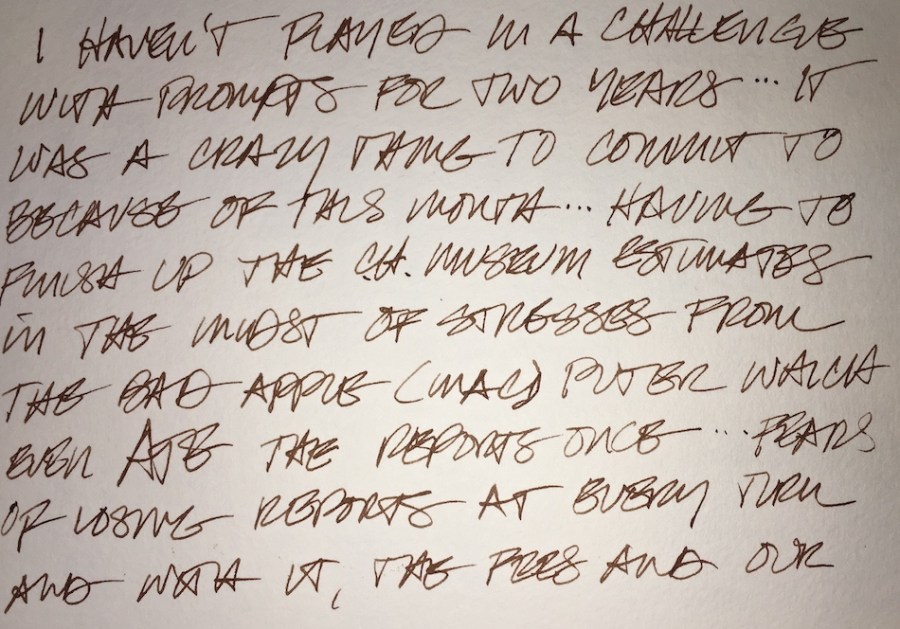 I HAVEN'T PLAYED IN A CHALLENGE
WITH PROMPTS FOR TWO YEARS... IT
WAS A CRAZY THING TO COMMIT TO
BECAUSE OF THIS MONTH... HAVING TO
FINISH UP THE CH. MUSEUM ESTIMATES
IN THE MIDST OF STRESSES FROM
THE BAD APPLE (MAC) PUTER WHICH
EVEN ATE THE REPORTS ONCE... FEARS
OF LOSING REPORTS AT EVERY TURN
AND WITH IT, THE FEES AND OUR